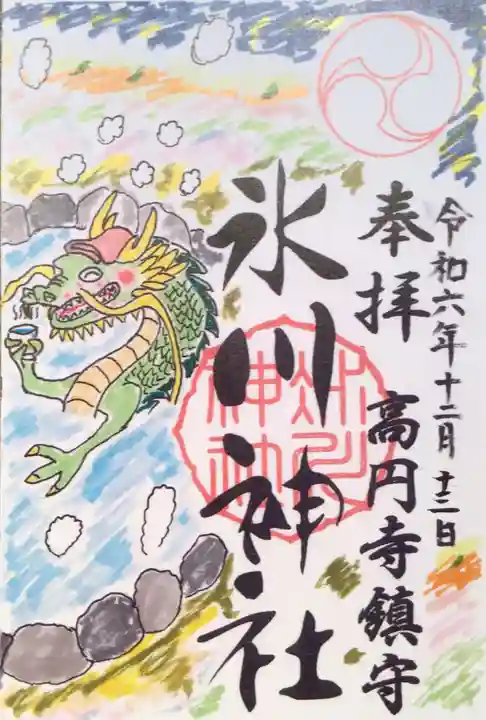 令和六年十二月十三日
奉拝 高円寺鎮守
氷川神社
氷川
神社